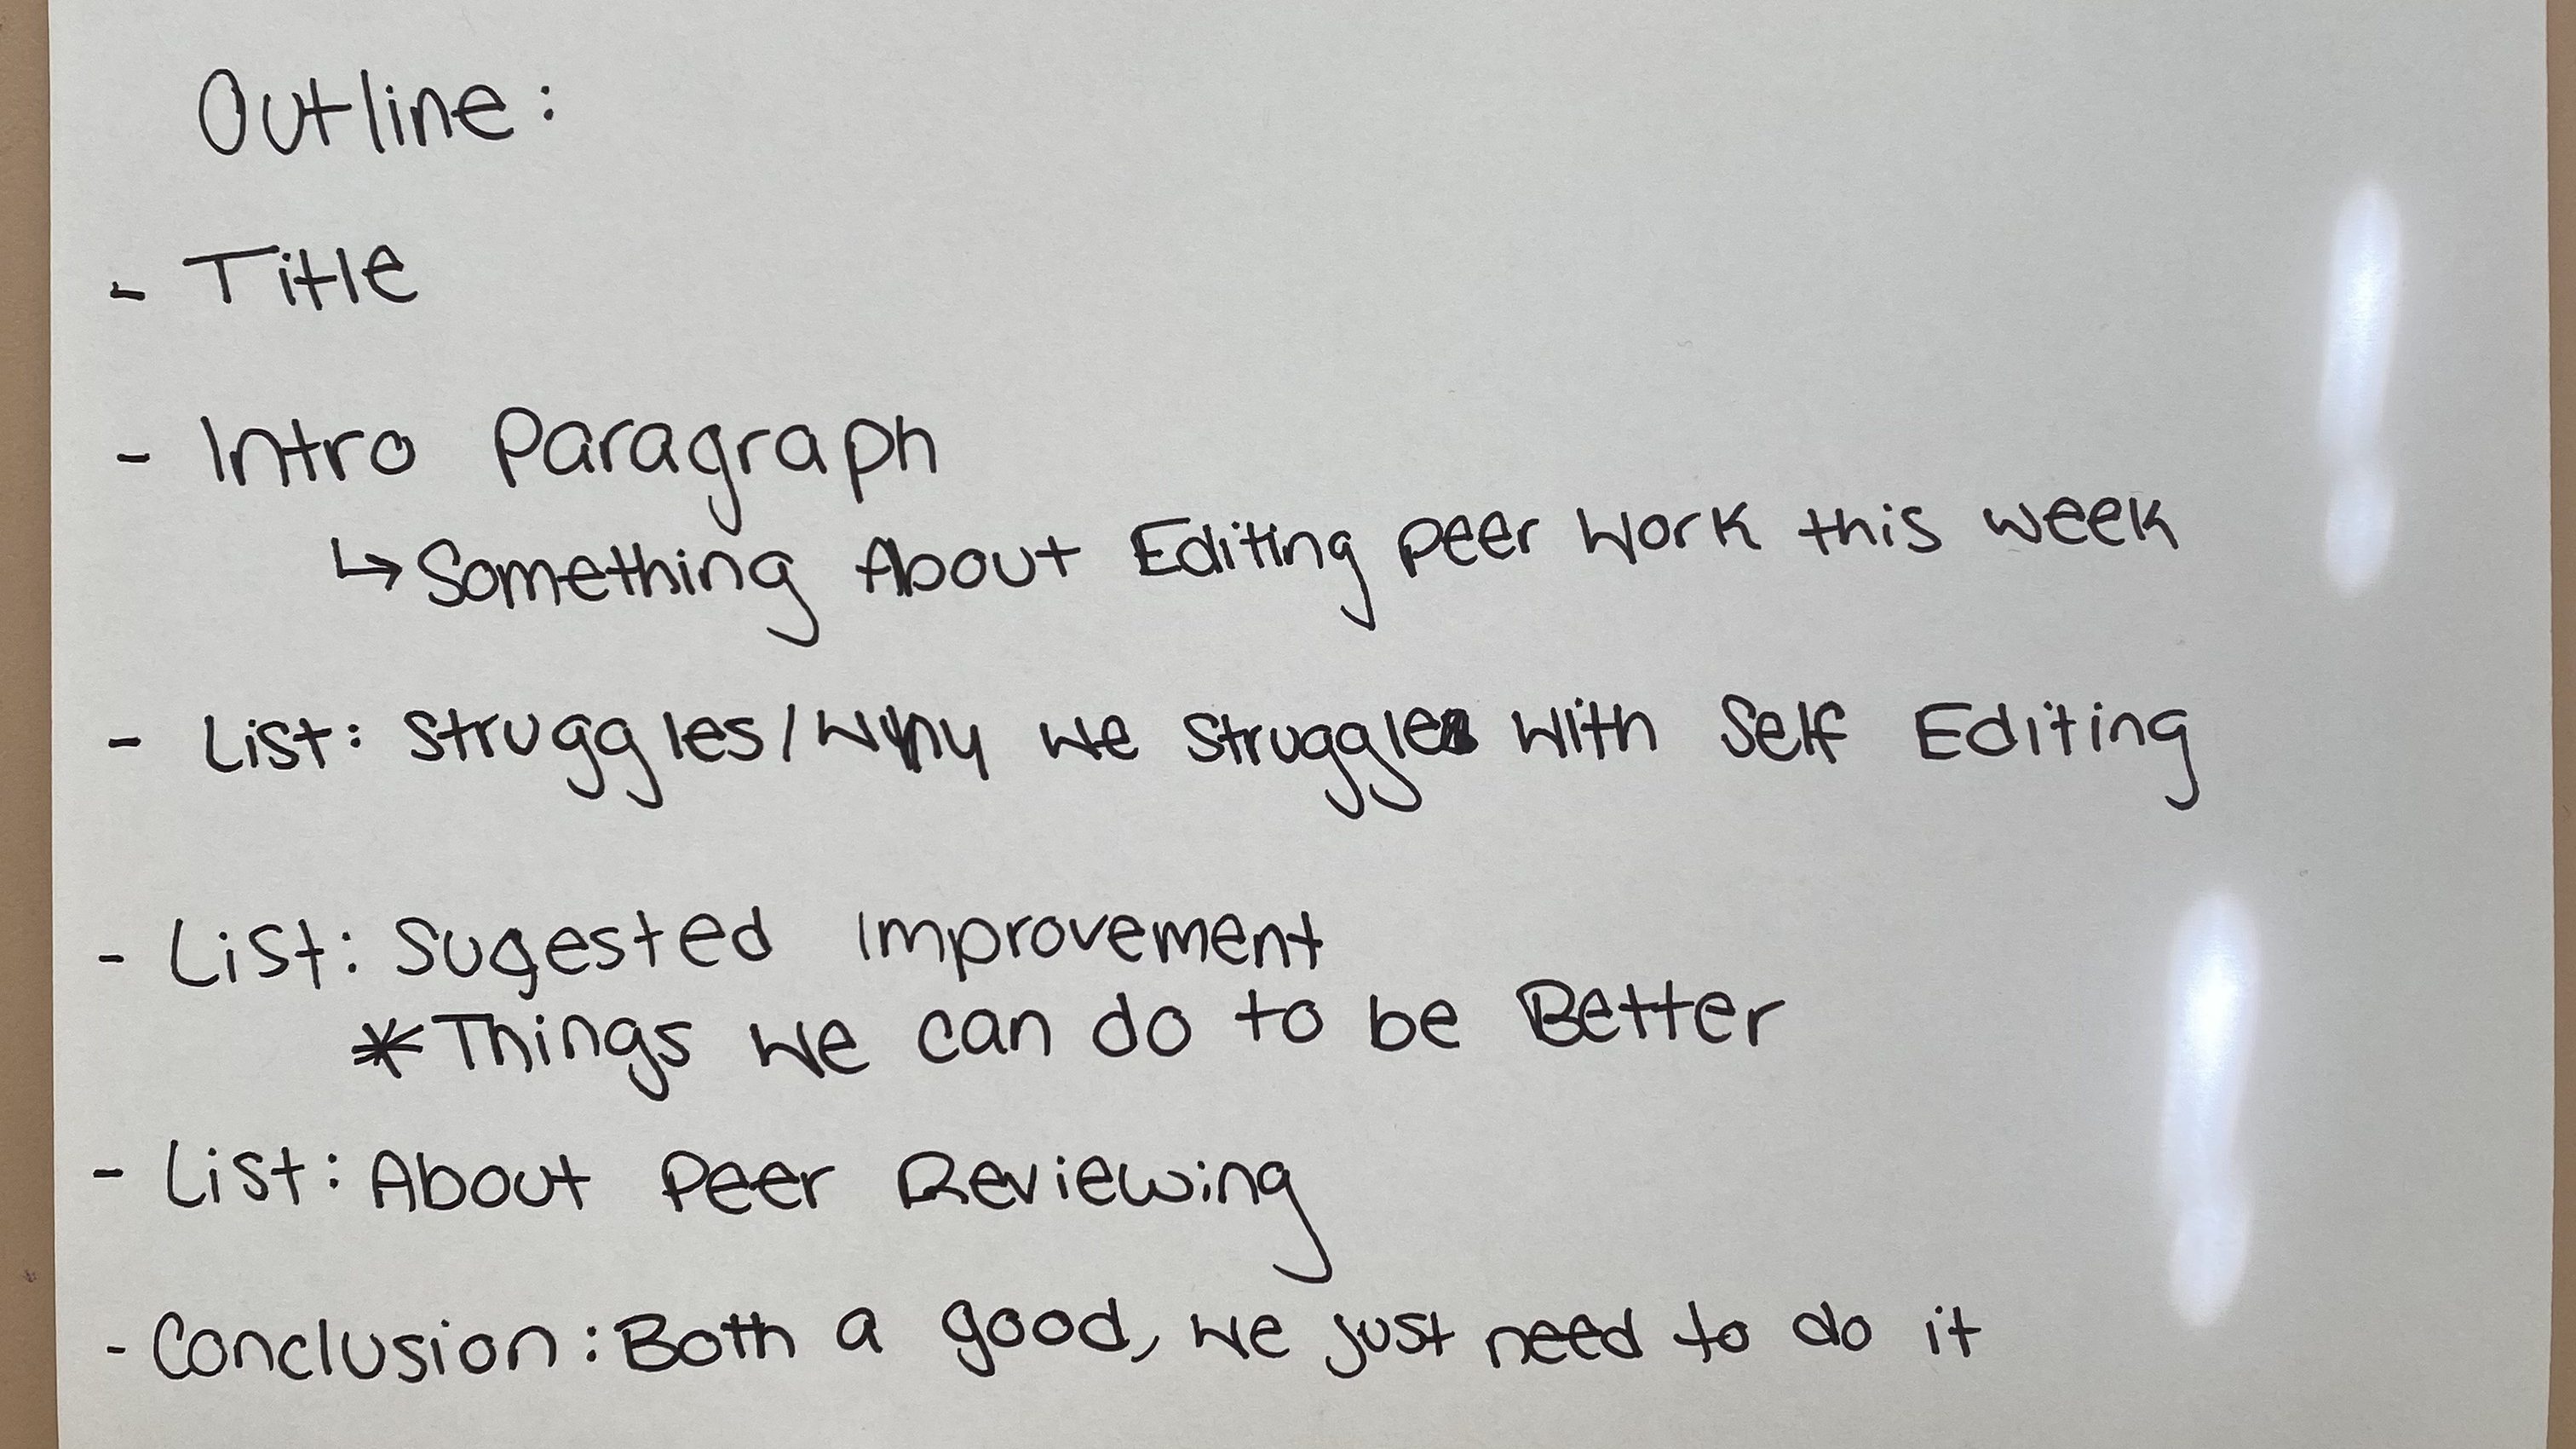 Outline:
- Title
- Intro Paragraph
↳ Something About Editing peer work this week
- List: struggles/why we struggle with Self Editing
- List: Sugested Improvement
* Things we can do to be Better
- List: About Peer Reviewing
- Conclusion: Both a good, we just need to do it